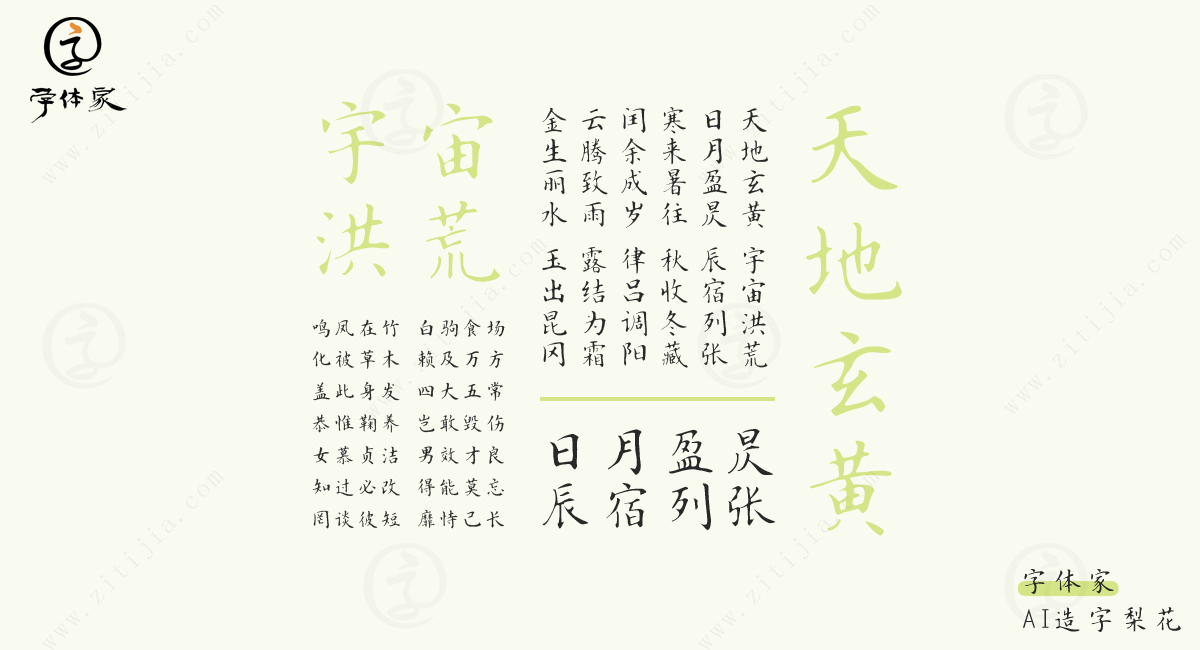 字体家
宇宙
洪荒
天地玄黄 宇宙洪荒
日月盈昃 辰宿列张
寒来暑往 秋收冬藏
闰余成岁 律吕调阳
云腾致雨 露结为霜
金生丽水 玉出昆冈
天地玄黄
鸣凤在竹 白驹食场
化被草木 赖及万方
盖此身发 四大五常
恭惟鞠养 岂敢毁伤
女慕贞洁 男效才良
知过必改 得能莫忘
罔谈彼短 靡恃己长
日月盈昃
辰宿列张
字体家
AI造字梨花
www.zitijia.com
www.zitijia.com
www.zitijia.com
www.zitijia.com
www.zitijia.com
www.zitijia.com